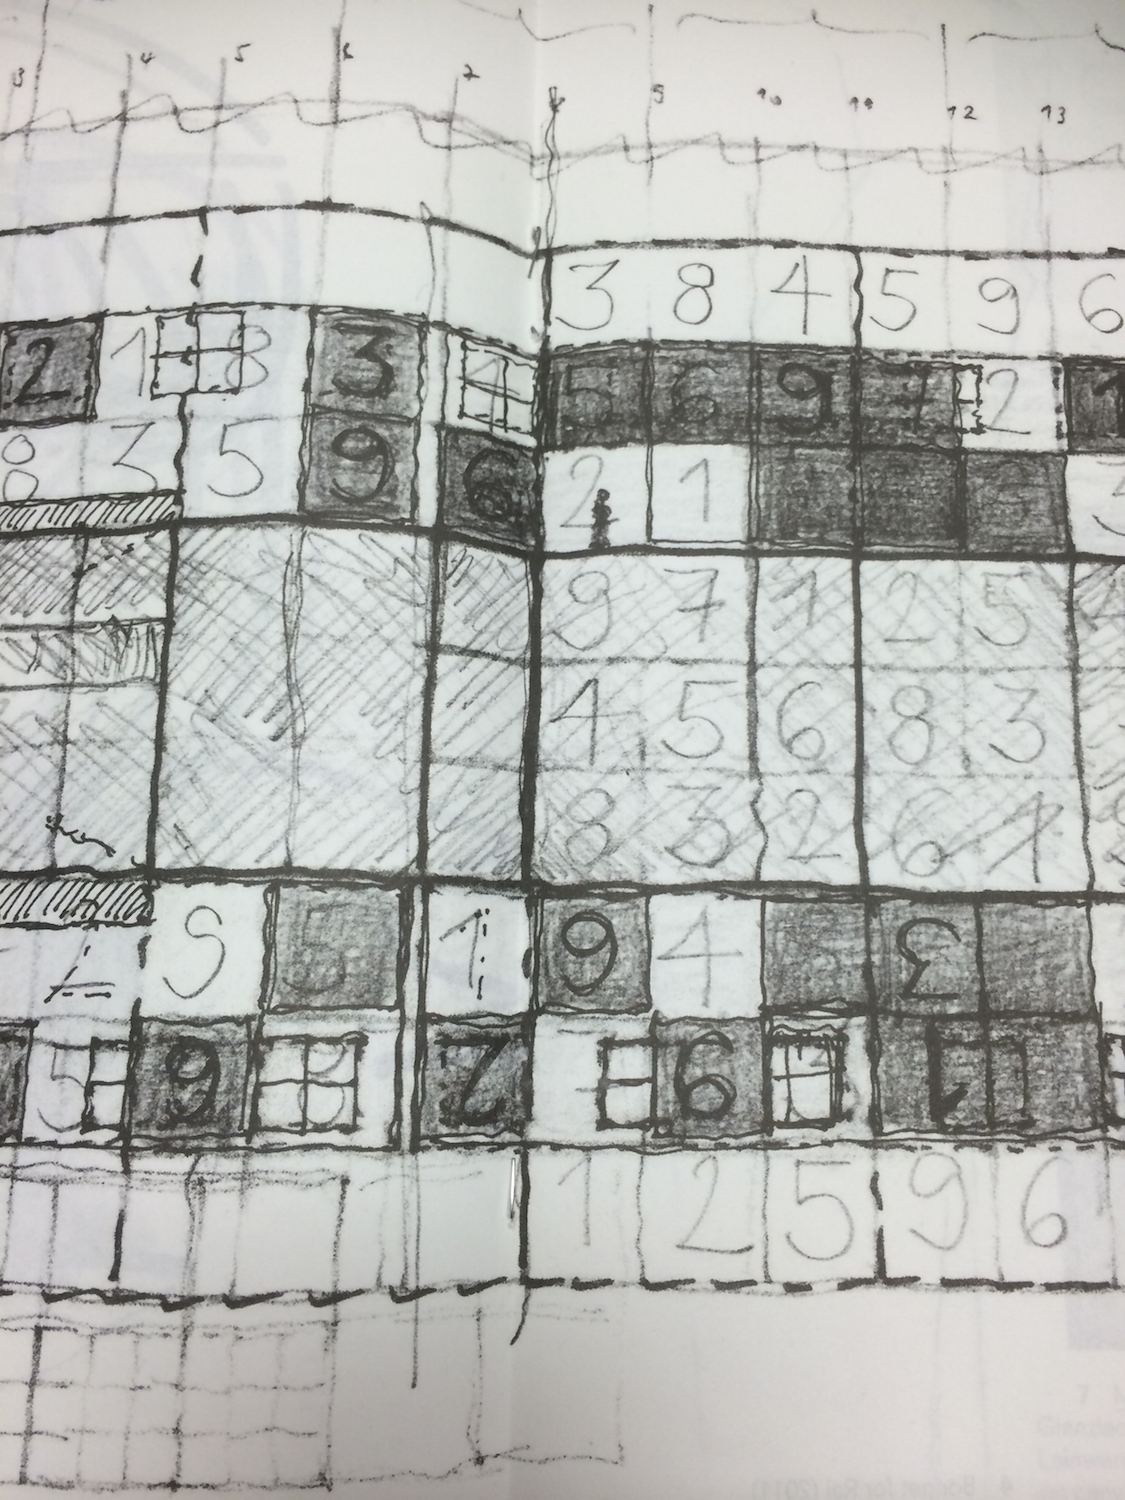 3 4 5 6 7 8 9 10 11 12 13
3 8 4 5 9 6
2 1 8 3 4 5 6 9 7 2 1
8 3 5 9 6 2 1 3
9 7 1 2 5 4
4 5 6 8 3
8 3 2 6 1
7 9 5 1 6 4 3
5 6 2 9 1
1 2 5 9 6